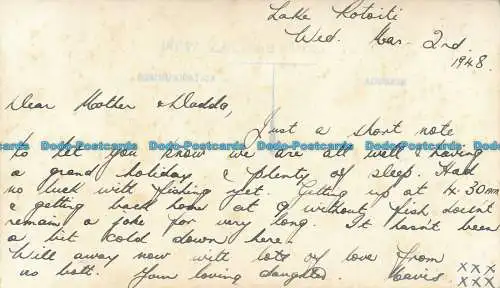 Lake Rotoiti
Wed. Mar. 2nd.
1948.
Dear Mother & Dadda,
Just a short note
to let you know we are all well & having
a grand holiday & plenty of sleep. Had
no luck with fishing yet. Getting up at 4.30am
& getting back home at 9 without fish, doesn't
remain a joke for very long. It hasn't been
a bit cold down here.
Will away now with lots of love from
us both. Your loving daughter. Mavis. xxx
xxx
Dodo-Postcards Dodo-Postcards Dodo-Postcards Dodo-Postcards Dodo-Postcards